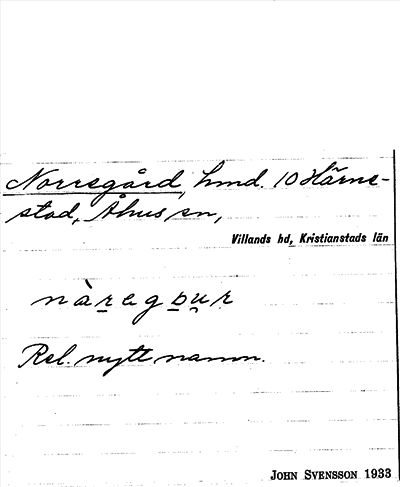 Norregård, hmd. 10 Härne-
stad, Åhus sn,
Villands hd, Kristianstads län
Rel. nytt namn.
JOHN SVENSSON 1933